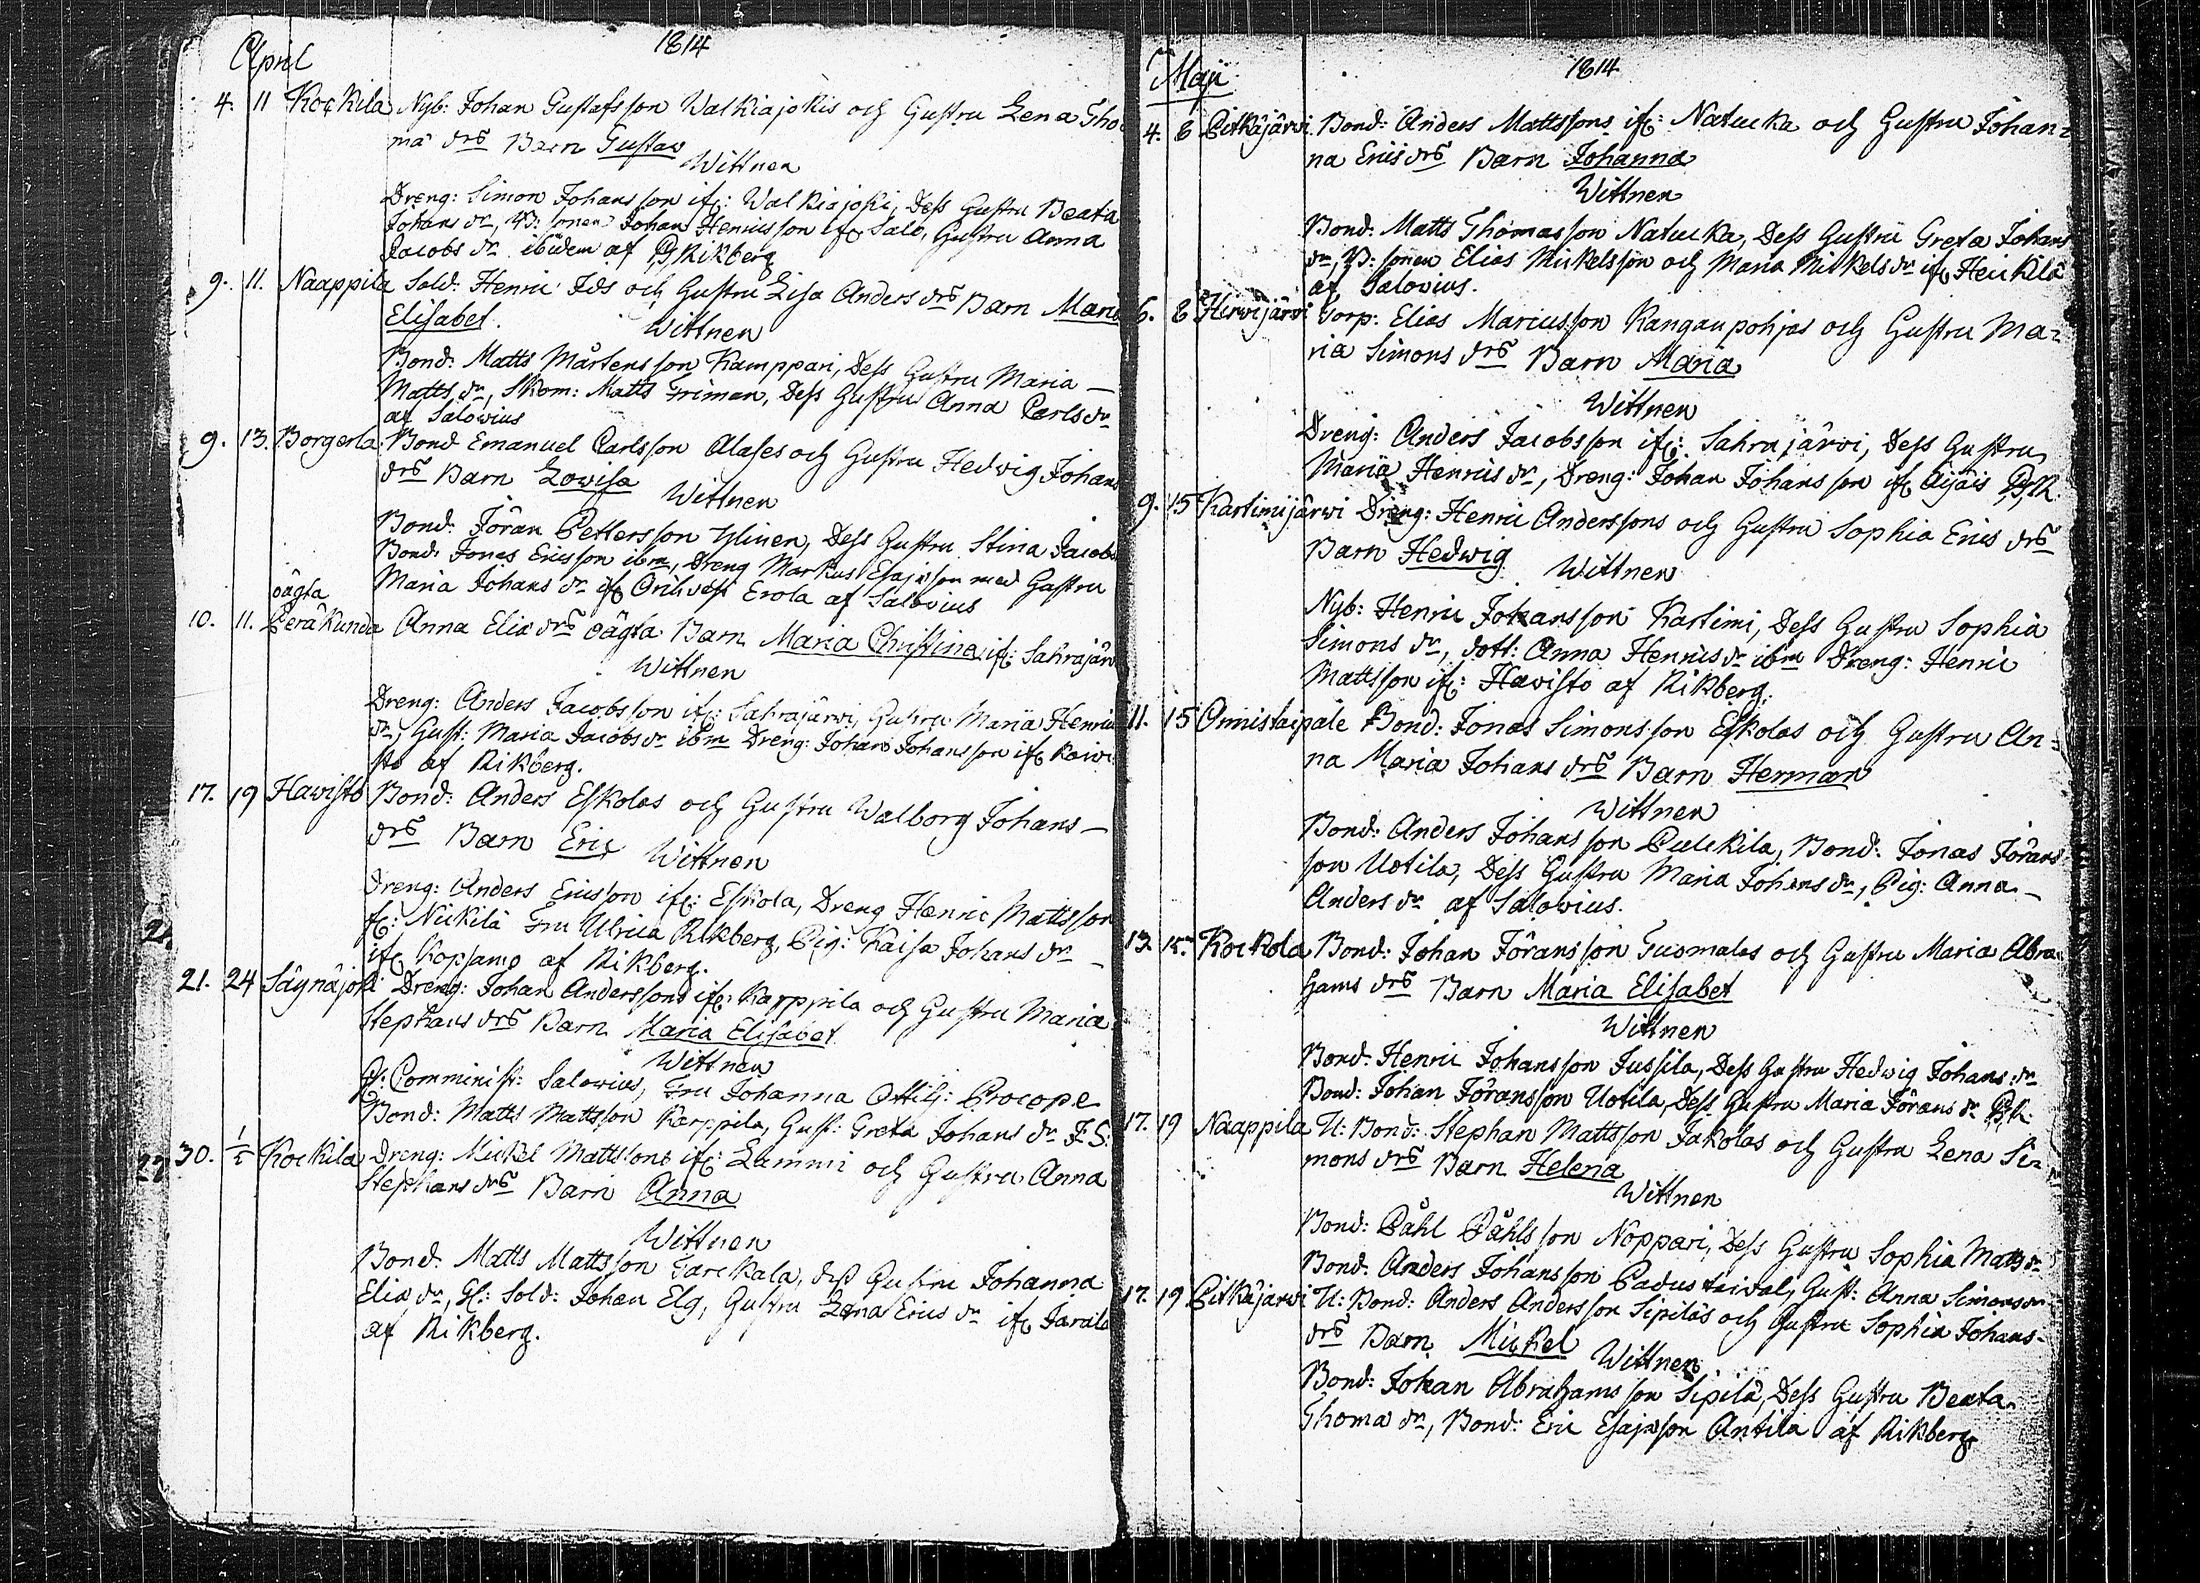 April
1814
4. 11 Kockila Nyb: Johan Gustafsson Walkiajokis och Hustru Lena Tho
mæ drs Barn Gustav
Wittnen
Dreng: Simon Johansson ifr: Walkiajoki, Dess Hustru Beata
Johans dr, B: sonen Johan Henricsson ifr Salo, Hustru Anna
Jacobs dr ibidem af Rikberg
9. 11. Naappila Sold: Henric Ids och Hustru Lisa Anders drs Barn Maria
Elisabet. Wittnen
Bond: Matts Mårtensson Kamppari, Dess Hustru Maria —
Matts dr, Skom: Matts Friman, Dess Hustru Anna Carls dr
af Salovius
9. 13. Borgerla Bond Emanuel Carlsson Alases och Hustru Hedvig Johans
drs Barn Lovisa Wittnen
Bond: Jöran Pettersson Ylinen, Dess Hustru Stina Jacobs
Bond: Jonas Ericsson ibm, Dreng Markus Esajæson med Hustru
Maria Johans dr ifr Orihvesi Erola af Salovius
oägta
10. 11. Peräkunda Anna Eliæ drs oägta Barn Maria Christina ifr: Sahrajär
Wittnen
Dreng: Anders Jacobsson ifr: Sahrajärvi, Hustru Maria Henrics
dr, Hust: Maria Jacobs dr ibm Dreng: Johan Johansson ifr
sto af Rikberg.
17. 19 Havisto Bond: Anders Eskolas och Hustru Walborg Johans —
drs Barn Eric Wittnen
Dreng: Anders Ericsson ifr: Eskola, Dreng Henric Mattsson
fr: Nickilä Fru Ulrica Rikberg, Pig: Kaisa Johans dr
ifr Kopsamo af Rikberg.
21. 24 Säynäjoki Dreng: Johan Anderssons ifr: Karppila och Hustru Maria
Stephans drs Barn Maria Elisabet
Wittnen
Comminist: Salovius, Fru Johanna Ottilj: Procope
Bond: Matts Mattsson Karppila, Hust: Greta Johans dr J. S.
30. 1/5 Kockila Dreng: Mickel Mattssons ifr: Lammi och Hustru Anna
Stephans drs Barn Anna
Wittnen
Bond: Matts Mattsson Tarckala, dess Hustru Johanna
Eliæ dr, Sold: Johan Elg, Hustru Lena Erics dr ifr Jarala
af Rikberg.
Maji
1814
4. 8 Pitkäjärvi Bond: Anders Mattssons ifr: Natucka och Hustru Johan=
na Erics drs Barn Johanna
Wittnen
Bond: Matts Thomasson Natucka, Dess Hustru Greta Johans
dr, B: sonen Elias Mickelsson och Maria Mickels dr ifr Heickilä
af Salovius.
6. 8 Hirvijärvi Torp: Elias Mariusson Kangaupohjas och Hustru Ma=
ria Simons drs Barn Maria
Wittnen
Dreng: Anders Jacobsson ifr: Sahrajärvi, Dess Hustru
Maria Henrics dr, Dreng: Johan Johansson ifr Äijäis
9. 15 Kartimijärvi Dreng: Henric Anderssons och Hustru Sophia Erics drs
Barn Hedwig Wittnen
Nyb: Henric Johansson Kartimi, Dess Hustru Sophia
Simons dr, dott: Anna Henrics dr ibm Dreng: Henric
Mattsson ifr: Havisto af Rikberg.
11. 15 Onnistaipale Bond: Jonas Simonsson Eskolas och Hustru An=
na Maria Johans drs Barn Herman
Wittnen
Bond: Anders Johansson Puckila, Bond: Jonas Jörans
son Uotila, Dess Hustru Maria Johans dr, Pig: Anna —
Anders dr af Salovius.
13. 15. Kockola Bond: Johan Jöransson Tuomalas och Hustru Maria Abra
hams drs Barn Maria Elisabet
Wittnen
Bond: Henric Johansson Jussila, Dess Hustru Hedvig Johans dr
Bond: Johan Jöransson Uotila, Dess Hustru Maria Jörans dr
17. 19 Naappila U: Bond: Stephan Mattsson Jakolas och Hustru Lena Si=
mons drs Barn Helena
Wittnen
Bond: Påhl Påhlsson Noppari, Dess Hustru Sophia Matts dr
Bond: Anders Johansson Padustaival, Hust: Anna Simons dr
17. 19 Pitkäjärvi U: Bond: Anders Andersson Sipiläs och Hustru Sophia Johans=
drs Barn Mickel Wittnen
Bond: Johan Abrahamsson Sipilä, Dess Hustru Beata
Thomæ dr, Bond: Eric Esajæson Antila af Rikberg